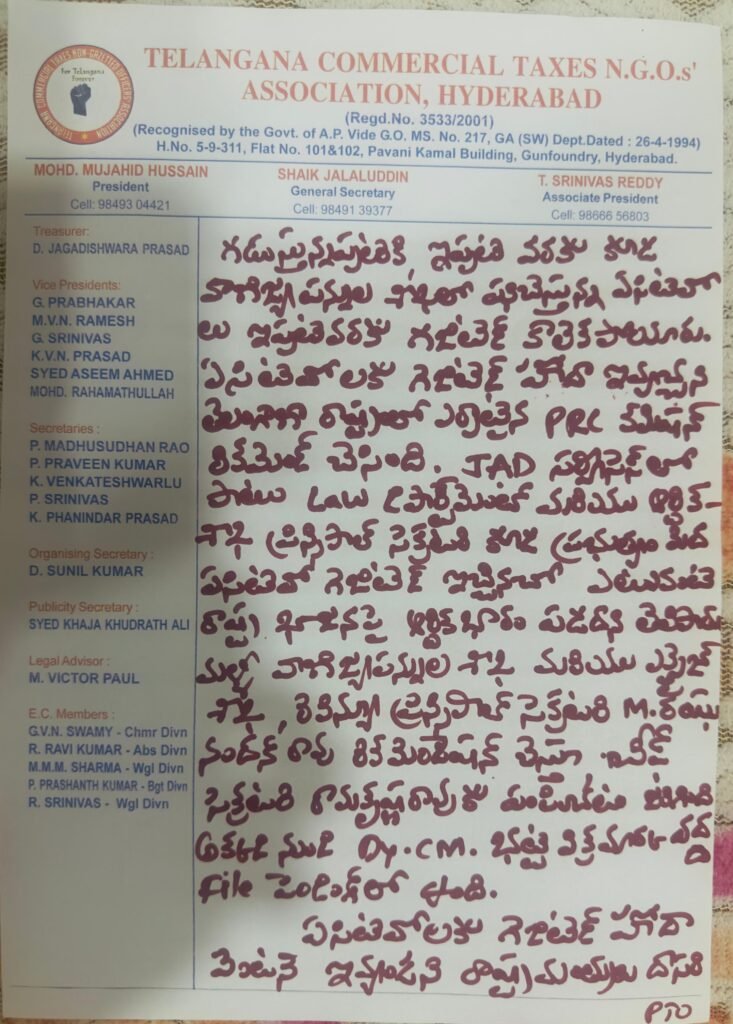 TELANGANA COMMERCIAL TAXES NON-GAZETTED OFFICERS ASSOCIATION
For Telangana
Forever
TELANGANA COMMERCIAL TAXES N.G.O.s'
ASSOCIATION, HYDERABAD
(Regd.No. 3533/2001)
(Recognised by the Govt. of A.P. Vide G.O. MS. No. 217, GA (SW) Dept.Dated : 26-4-1994)
H.No. 5-9-311, Flat No. 101&102, Pavani Kamal Building, Gunfoundry, Hyderabad.
MOHD. MUJAHID HUSSAIN
President
Cell: 98493 04421
SHAIK JALALUDDIN
General Secretary
Cell: 98491 39377
T. SRINIVAS REDDY
Associate President
Cell: 98666 56803
Treasurer:
D. JAGADISHWARA PRASAD
Vice Presidents:
G. PRABHAKAR
M.V.N. RAMESH
G. SRINIVAS
K.V.N. PRASAD
SYED ASEEM AHMED
MOHD. RAHAMATHULLAH
Secretaries :
P. MADHUSUDHAN RAO
P. PRAVEEN KUMAR
K. VENKATESHWARLU
P. SRINIVAS
K. PHANINDAR PRASAD
Organising Secretary :
D. SUNIL KUMAR
Publicity Secretary :
SYED KHAJA KHUDRATH ALI
Legal Advisor :
M. VICTOR PAUL
E.C. Members :
G.V.N. SWAMY - Chmr Divn
R. RAVI KUMAR - Abs Divn
M.M.M. SHARMA - Wgl Divn
P. PRASHANTH KUMAR - Bgt Divn
R. SRINIVAS - Wgl Divn
గడుస్తున్నప్పటికి ఇప్పటి వరకు కూడ
వాణిజ్యపన్నుల శాఖలో పనిచేస్తున్న ఏసిటివో
లు ఇప్పటివరకు గెజిటెడ్ కాలేకపోయారు.
ఏసిటివోలకు గెజిటెడ్ హోదా ఇవ్వాలని
తెలంగాణ రాష్ట్రంలో ఏర్పాటైన PRC కమిషన్
రికమెండ్ చేసింది. JAD సర్వీసెస్ లో
పాటు Law డిపార్ట్‌మెంట్ మరియు ఆర్థిక-
శాఖ ప్రిన్సిపాల్ సెక్రటరి కూడ ప్రభుత్వం మీద
ఏసిటివో గెజిటెడ్ ఇచ్చినచో ఎటువంటి
రాష్ట్ర ఖజానపై ఆర్థికభారం పడదని తెలిపారు
మళ్లీ వాణిజ్యపన్నుల శాఖ మరియు ఎక్సైజ్
శాఖ, ప్రిన్సిపాల్ సెక్రటరి M. రఘు
నందన్ రావు రికమెండేషన్ చేస్తూ చీఫ్
సెక్రటరి రామకృష్ణరావుకు పంపించటం జరిగింది
అక్కడి నుండి Dy. CM. భట్టి విక్రమార్క వద్ద
File పెండింగ్‌లో ఉంది.
ఏసిటివోలకు గెజిటెడ్ హోదా
వెంటనే ఇవ్వండని రాష్ట్ర దాసరి
PTO